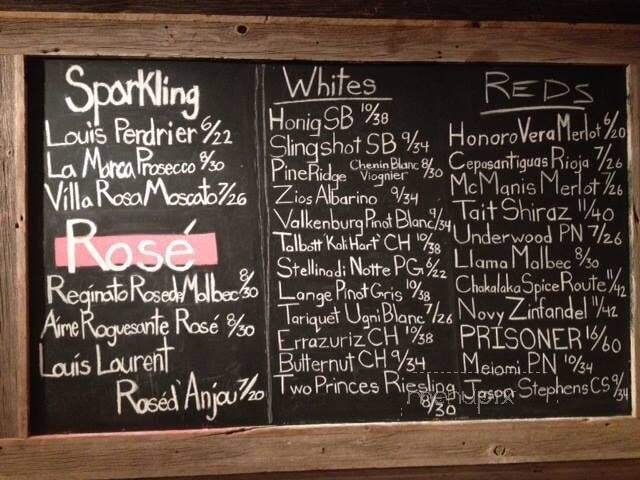 Sparkling
Louis Perdrier 6/22
La Marca Prosecco 8/30
Villa Rosa Moscato 7/26
Rosé
Reginato Rose de Malbec 8/30
Aime Roquesante Rosé 8/30
Louis Lourent
Rosé d'Anjou 7/20
Whites
Honig SB 10/38
Slingshot SB 9/34
Pine Ridge Chenin Blanc Viognier 8/30
Zios Albarino 9/34
Valkenburg Pinot Blanc 9/34
Talbott Kali Hart CH 10/38
Stellina di Notte PG 6/22
Lange Pinot Gris 10/38
Tariquet Ugni Blanc 7/26
Errazuriz CH 10/38
Butternut CH 9/34
Two Princes Riesling 8/30
REDS
Honoro Vera Merlot 6/20
Cepas antiguas Rioja 7/26
McManis Merlot 7/26
Tait Shiraz 11/40
Underwood PN 7/26
Llama Malbec 8/30
Chakalaka Spice Route 11/42
Novy Zinfandel 11/42
PRISONER 16/60
Meiomi PN 10/34
Jason Stephens CS 9/34
menupix